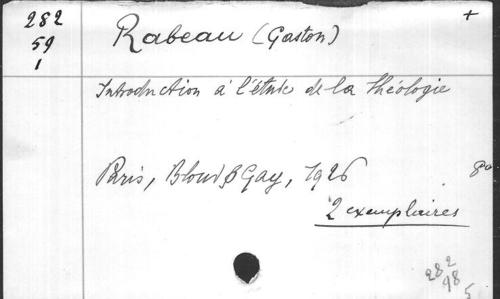 282
59
1
Rabeau (Gaston)
+
Introduction à l'étude de la théologie
Paris, Bloud & Gay, 1926
8°
2 exemplaires
282
98
5